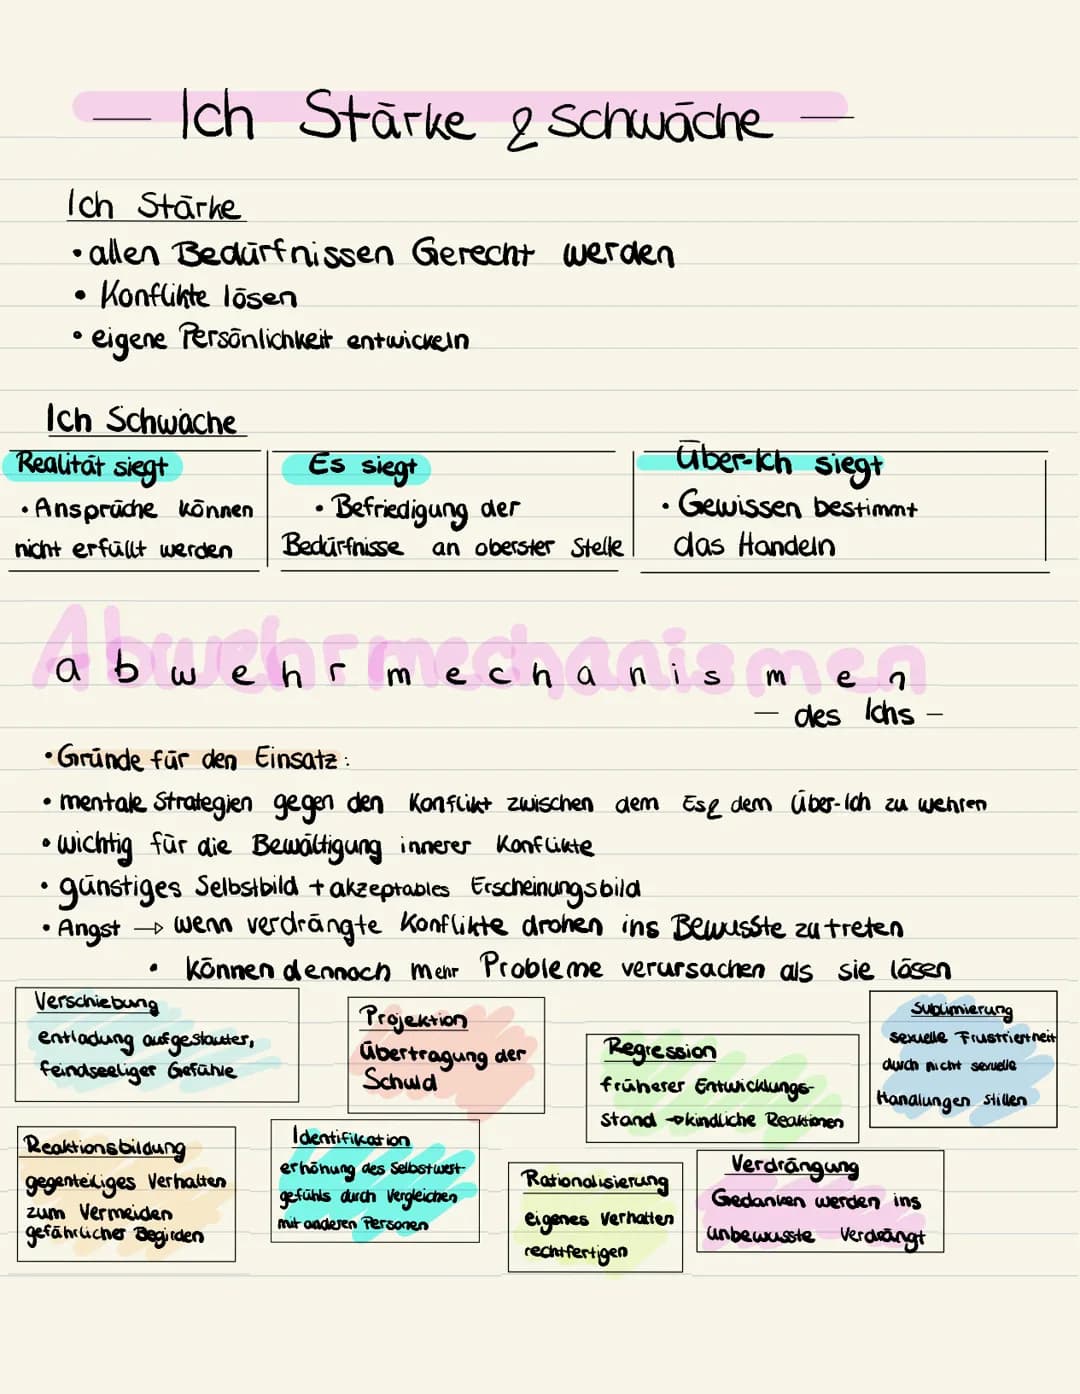 — Ich Stärke & Schwäche —
Ich Stärke
• allen Bedürfnissen Gerecht werden
• Konflikte lösen
• eigene Persönlichkeit entwickeln
Ich Schwäche
Realität siegt
• Ansprüche können
nicht erfüllt werden
Es siegt
• Befriedigung der
Bedürfnisse an oberster Stelle
Über-Ich siegt
• Gewissen bestimmt
das Handeln
Abwehrmechanismen
abwehrmechanismen
— des Ichs —
• Gründe für den Einsatz:
• mentale Strategien gegen den Konflikt zwischen dem Es & dem Über-Ich zu wehren
• wichtig für die Bewältigung innerer Konflikte
• günstiges Selbstbild + akzeptables Erscheinungsbild
• Angst → wenn verdrängte Konflikte drohen ins Bewusste zu treten
• können dennoch mehr Probleme verursachen als sie lösen
Verschiebung
entladung aufgestauter,
feindseeliger Gefühle
Projektion
Übertragung der
Schuld
Regression
früherer Entwicklungs-
stand → kindliche Reaktionen
Sublimierung
sexuelle Frustriertheit
durch nicht sexuelle
Handlungen stillen
Reaktionsbildung
gegenteiliges Verhalten
zum Vermeiden
gefährlicher Begirden
Identifikation
erhöhung des Selbstwert-
gefühls durch Vergleichen
mit anderen Personen
Rationalisierung
eigenes Verhalten
rechtfertigen
Verdrängung
Gedanken werden ins
unbewusste Verdrängt